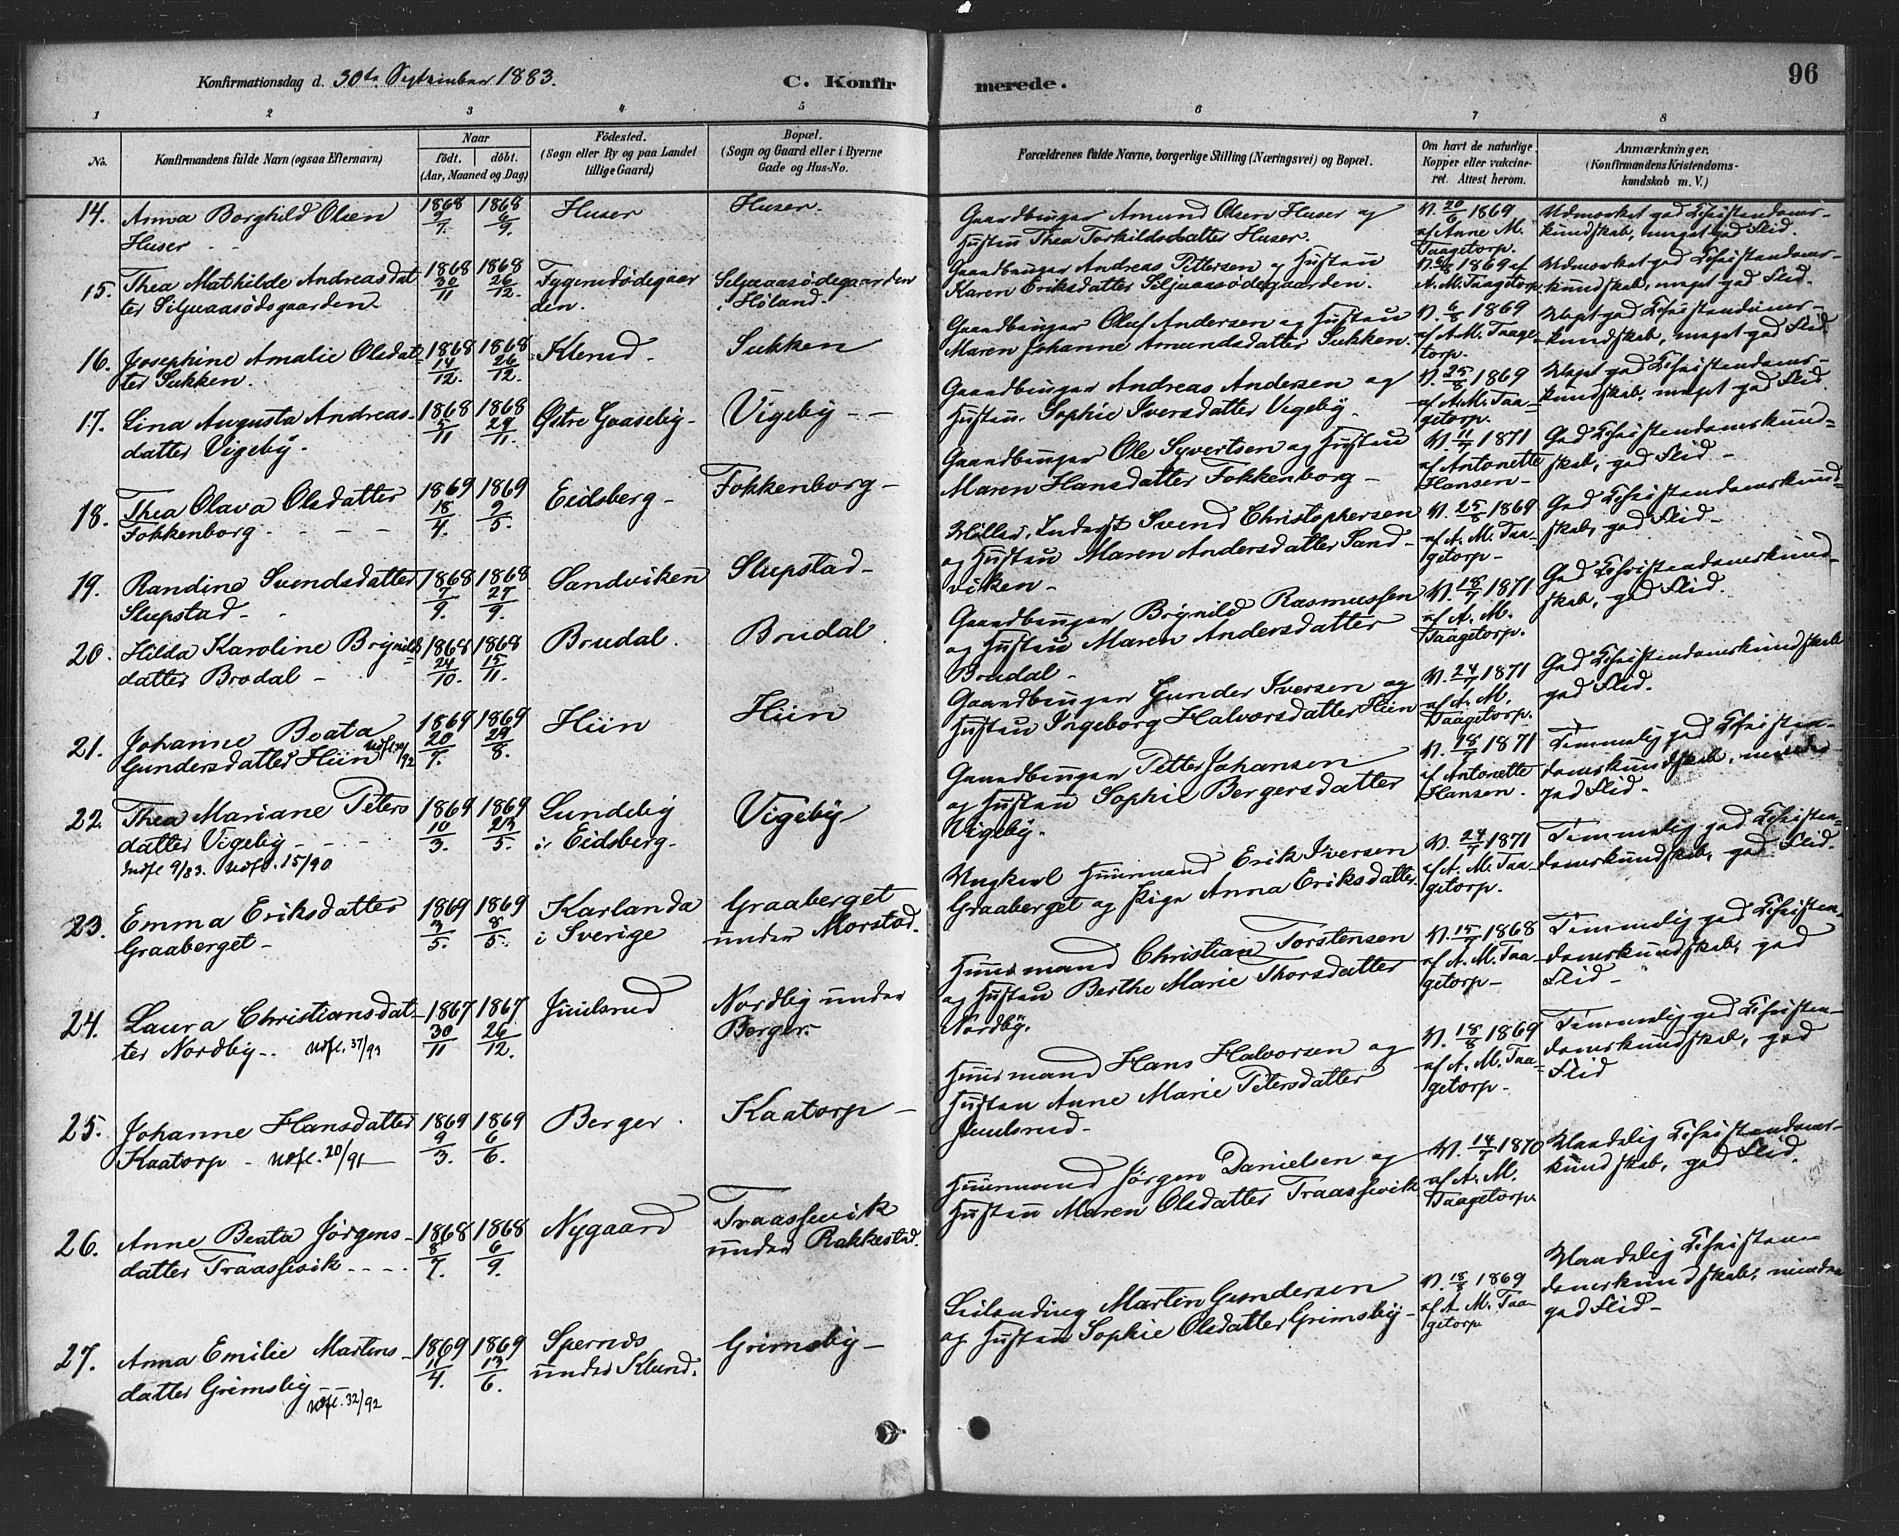 Konfirmationsdag d. 30te September 1883.
C. Konfir
merede.
96
1 2 3 4 5 6 7 8
No. Konfirmandens fulde Navn (ogsaa Efternavn)
Naar
født. døbt.
(Aar, Maaned og Dag)
Fødested.
(Sogn eller By og paa Landet
tillige Gaard)
Bopæl.
(Sogn og Gaard eller i Byerne
Gade og Hus-No.
Forældrenes fulde Navne, borgerlige Stilling (Næringsvei) og Bopæl.
Om havt de naturlige
Kopper eller vaccine-
ret. Attest herom.
Anmærkninger.
(Konfirmandens Kristendoms-
kundskab m. V.)
14. Anna Borghild Olsen
Huser - -
1868 7/7. 1868 6/9. Huser Huser.
Gaardbruger Amund Olsen Huser og
Hustru Thea Torkildsdatter Huser.
V. 20/6 1869
af Anne M.
Taagetorp.
Udmærket god Christendoms-
kundskab, meget god Flid.
15. Thea Mathilde Andreasdat-
ter Siljuaasødegaarden
1868 30/11 1868 26/12.
den.
Siljuaasødegaarden
i Høland.
Gaardbruger Andreas Pettersen og Hustru
Karen Eriksdatter Siljuaasødegaarden.
1869 af
A. M. Taagetorp
Udmærket god Christendoms-
kundskab, meget god Flid.
16. Josephine Amalie Olsdat-
ter Sukken.
1868 14/12. 1868 26/12. Klerud. Sukken
Gaardbruger Oluf Andersen og Hustru
Maren Johanne Amundsdatter Sukken.
V. 6/8 1869
af A. M. Taage-
torp.
Meget god Christendoms-
kundskab, meget god Flid.
17. Lina Augusta Andreas-
datter Vigeby.
1868 5/11 1868 29/11. Østre Gaaseby- Vigeby - -
Gaardbruger Andreas Andersen og
Hustru. Sophie Iversdatter Vigeby.
V. 25/8 1869
af A. M. Taa-
getorp.
Meget god Christendoms-
kundskab, meget god Flid.
18. Thea Olava Olsdatter
Fokkenborg - - -
1869 18/4. 1869 2/5. Eidsberg - Fokkenborg -
Gaardbruger Ole Syvertsen og Hustru
Maren Hansdatter Fokkenborg -
V. 11/7 1871
af Antonette
Hansen -
God Christendomskund-
skab, god Flid -
19. Randine Svendsdatter
Slupstad - -
1868 7/9. 1868 27/9. Sandviken Slupstad -
Svend Christophersen
og Hustru Maren Andersdatter Sand-
viken -
V. 25/8 1869
af A. M. Taa-
getorp -
God Christendomskund-
skab, god Flid -
20. Hilda Karoline Brynilds-
datter Brodal -
1868 24/10. 1868 15/11. Brudal. Brudal
Gaardbruger Brynild Rasmussen
og Hustru Maren Andersdatter
Brudal -
V. 18/7 1871
af A. M.
Taagetorp.
God Christendomskund-
skab, god Flid.
21. Johanne Beata
Gundersdatter Hiin
1869 20/7. 1869 29/8. Hiin Hiin
Gaardbruger Gunder Iversen og
Hustru Ingeborg Halvorsdatter Hiin
V. 24/7 1871
af A. M.
Taagetorp.
God Christendomskundskab
god Flid.
22. Thea Mariane Peters
datter Vigeby - - -
Udfl. 15/90
1869 10/3. 1869 23/5. Lundeby
i Eidsberg -
Vigeby
Gaardbruger Petter Johansen
og Hustru Sophie Bergersdatter
Vigeby.
V. 18/7 1871
af Antonette
Hansen.
Temmelig god Christen-
domskundskab, mindre
god Flid -
23. Emma Eriksdatter
Graaberget -
1869 3/5. 1869 8/5. Karlanda
i Sverige
Graaberget
under Morstad.
Ungkarl Huusmand Erik Iversen
Graaberget og Pige Anna Eriksdatter
V. 24/7 1871
af A. M. Taa-
getorp.
Temmelig god Christen-
domskundskab, god Flid.
24. Laura Christiansdat-
ter Nordby -. Udfl. 37/93
1867 30/11 1867 26/12. Juulsrud Nordby under
Berger -
Huusmand Christian Torstensen
og Hustru Berthe Marie Thorsdatter
Nordby.
V. 15/7 1868
af A. M. Taa-
getorp -
Temmelig god Christen-
domskundskab, god
Flid -
25. Johanne Hansdatter
Kaatorp - Udfl. 20/91 -
1869 9/3. 1869 6/6. Berger. Kaatorp -
Huusmand Hans Halvorsen og
Hustru Anne Marie Petersdatter
Juulsrud -
V. 18/8 1869
af A. M. Taa-
getorp -
Temmelig god Christen-
domskundskab, god
Flid
26. Anne Beata Jørgens-
datter Traassevik - - - -
1868 8/7. 1868 6/9. Nygaard Traassevik
under Rakkestad.
Huusmand Jørgen Danielsen og
Hustru Maren Olsdatter Traassevik
V. 14/7 1870
af A. M.
Taagetorp.
Maadelig Christendoms-
kundskab, god Flid.
27. Anna Emilie Martins-
datter Grimsby -
Udfl. 32/92
1869 11/4. 1869 13/6.
under Klund.
Grimsby -
Leilænding Martin Gundersen
og Hustru Sophie Olsdatter Grimsby -
V. 18/8 1869
af A. M. Taa-
getorp
Maadelig Christen-
domskundskab, mindre
god Flid -